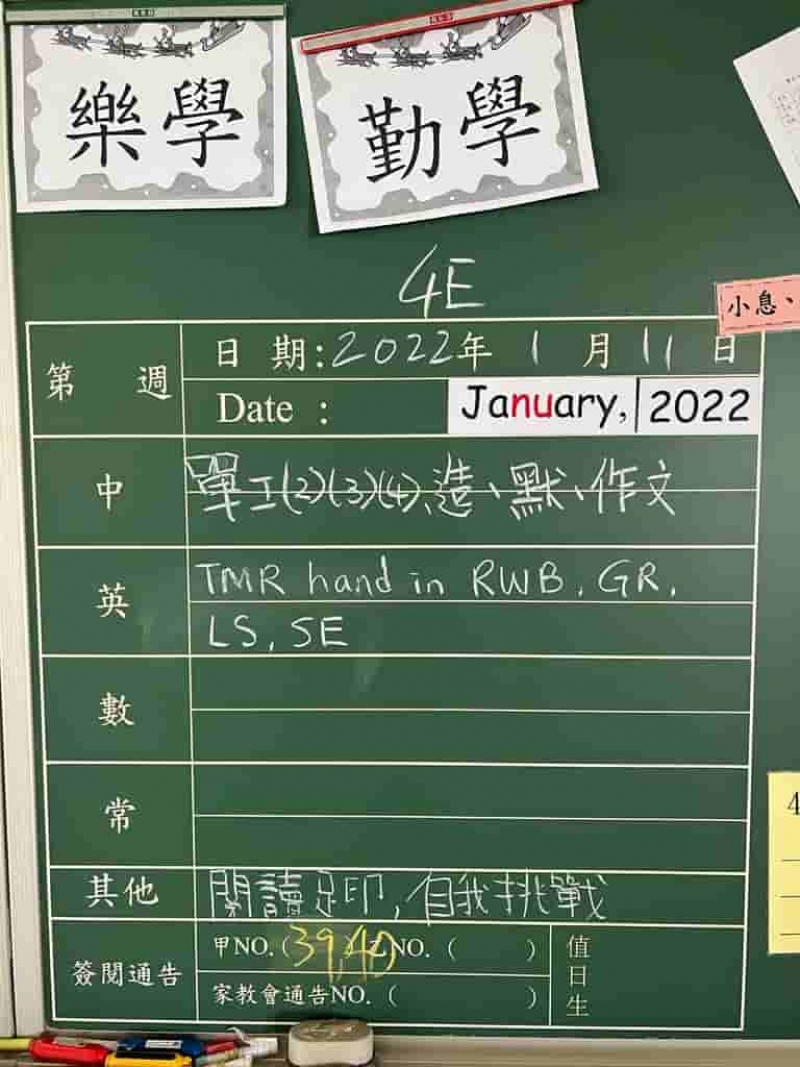 樂學
勤學
4E
小息、
第 週
日 期:2022年 1 月 11 日
Date : January, 2022
中
單工(2)(3)(4)、造、默、作文
英
TMR hand in RWB, GR,
LS, SE
數
常
其他
閱讀足印, 自我挑戰
簽閱通告
甲NO. (39,40 乙NO. ( )
家教會通告NO. ( )
值日生
4